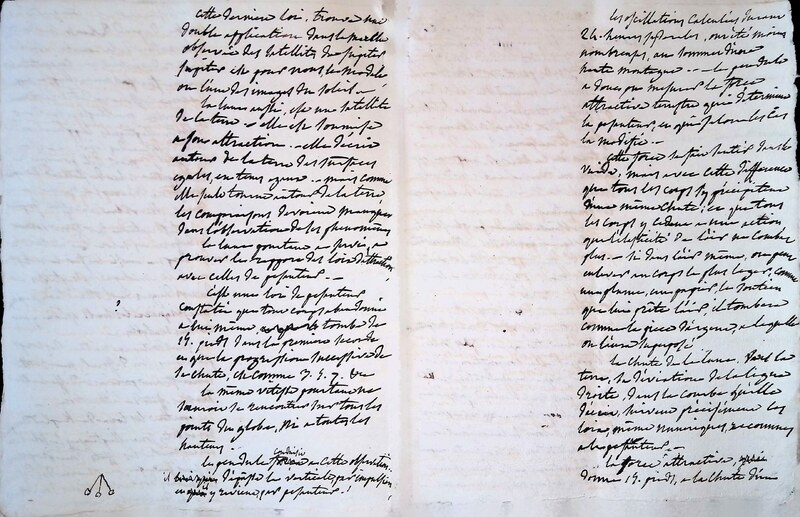 Cette derniere loi, trouve une
double application dans le
observée des satellites de jupiter
jupiter est pour nous le modele
ou l'une des images du soleil --
la lune aussi, est une satellite
de la terre - elle est soumise
a son attraction - elle décrit
autour de la terre des surfaces
egales, en tems egaux -- mais comme
elle seule tourne autour de la terre
les comparaisons devoient manquer
dans l'observation de ses phenomenes
la lune pourtant a servi, a
prouver le rapport des loix d'attraction
avec celles de pesanteur --
C'est une loi de pesanteur
constatée que tout corps abandonné
a lui même, tombe de
15. pieds dans la premiere seconde
et que la progression successive de
sa chute, est comme 3. 5. 7. &c
la même vitesse pourtant ne
sauroit se rencontrer sur tous les
points du globe, ni a toutes les
hauteurs -
le pendule a cette observation
il s'éloigne de la verticale, par impulsion
et y revient, par pesanteur!
les oscillations calculées durant
24. heures, ont été moins
nombreuses, au sommet d'une
haute montagne -- le pendule
a donc pu mesurer la force
attractive terrestre qui determine
la pesanteur, et qui selon les cas
la modifie --
Cette force se fait sentir dans le
vuide, mais avec cette difference
que tous les corps s'y précipitent
d'une même chute, et que tous
les corps y cedent a une action
que l'élasticité de l'air ne combat
plus -- si dans l'air même, on peut
enlever un corps le plus leger, comme
une plume, un papier le soutien
que lui prête l'air, il tombera
comme la piece d'argent, a laquelle
on l'aura superposé
la chute de la lune. vers la
terre, sa déviation de la ligne
droite, dans la courbe qu'elle
décrit, suivent précisement les
loix, même numeriques, reconnues
a la pesanteur --
la force attractive,
donne 15. pieds, a la chute d'un